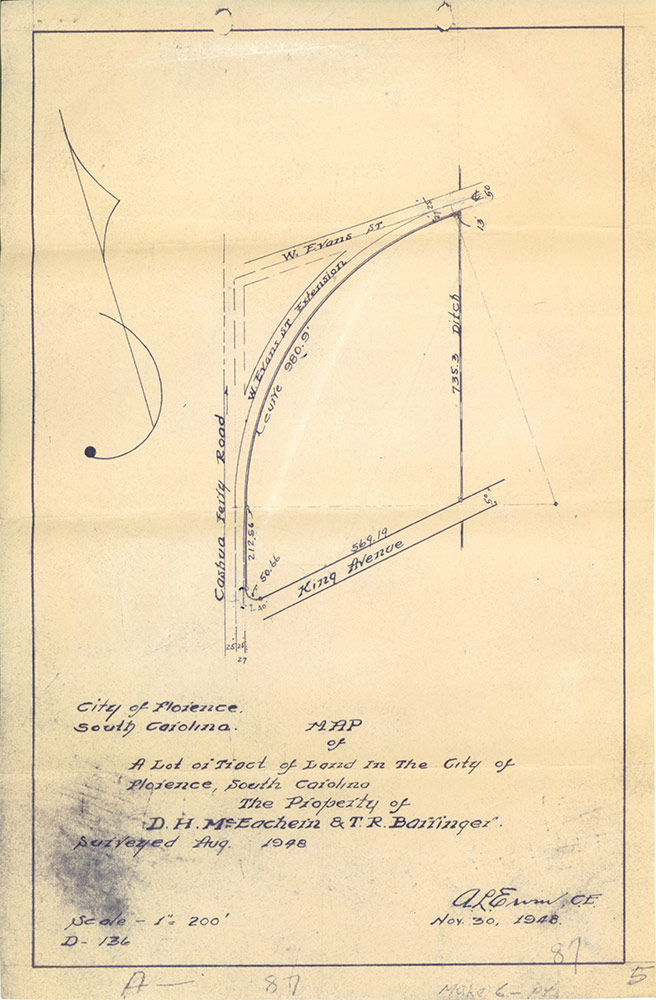 60
25
13
W. Evans St.
W. Evans St. Extension
curve 980.9'
735.3 Ditch
Cashua Ferry Road
212.56
50.66
569.19
50
King Avenue
25 25
27
City of Florence.
South Carolina. MAP
of
A Lot or Tract of Land In The City of
Florence, South Carolina
The Property of
D. H. McEachern & T. R. Barringer.
Surveyed Aug. 1948
C.E.
Scale - 1"= 200' Nov. 30, 1948.
D- 136
87
A- 87 Make 6 -
5